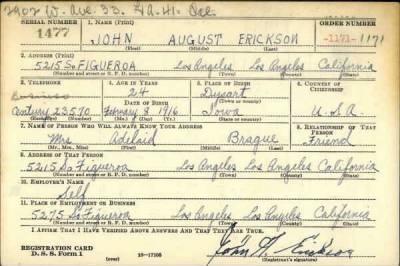 2902 W. Ave. 33. L.A. 41. Cal.
SERIAL NUMBER 1. NAME (Print) ORDER NUMBER
1477 JOHN AUGUST ERICKSON 1171 1171
(First) (Middle) (Last)
2. ADDRESS (Print)
5215 So. FIGUEROA Los Angeles Los Angeles California
(Number and street or R. F. D. number) (Town) (County) (State)
3. TELEPHONE 4. AGE IN YEARS 5. PLACE OF BIRTH 6. COUNTRY OF CITIZENSHIP
Business 24 Dysart
DATE OF BIRTH (Town or county)
Century 23570 February 8 1916 Iowa U.S.A.
(Exchange) (Number) (Mo.) (Day) (Yr.) (State or country)
7. NAME OF PERSON WHO WILL ALWAYS KNOW YOUR ADDRESS 8. RELATIONSHIP OF THAT PERSON
Mrs Adelaid Brague Friend
(Mr., Mrs., Miss) (First) (Middle) (Last)
9. ADDRESS OF THAT PERSON
5215 So Figueroa Los Angeles Los Angeles California
(Number and street or R. F. D. number) (Town) (County) (State)
10. EMPLOYER'S NAME
Self
11. PLACE OF EMPLOYMENT OR BUSINESS
5275 So Figueroa Los Angeles Los Angeles California
(Number and street or R. F. D. number) (Town) (County) (State)
I AFFIRM THAT I HAVE VERIFIED ABOVE ANSWERS AND THAT THEY ARE TRUE.
REGISTRATION CARD
D. S. S. Form 1 16—17105 John A. Erickson
(Registrant's signature)